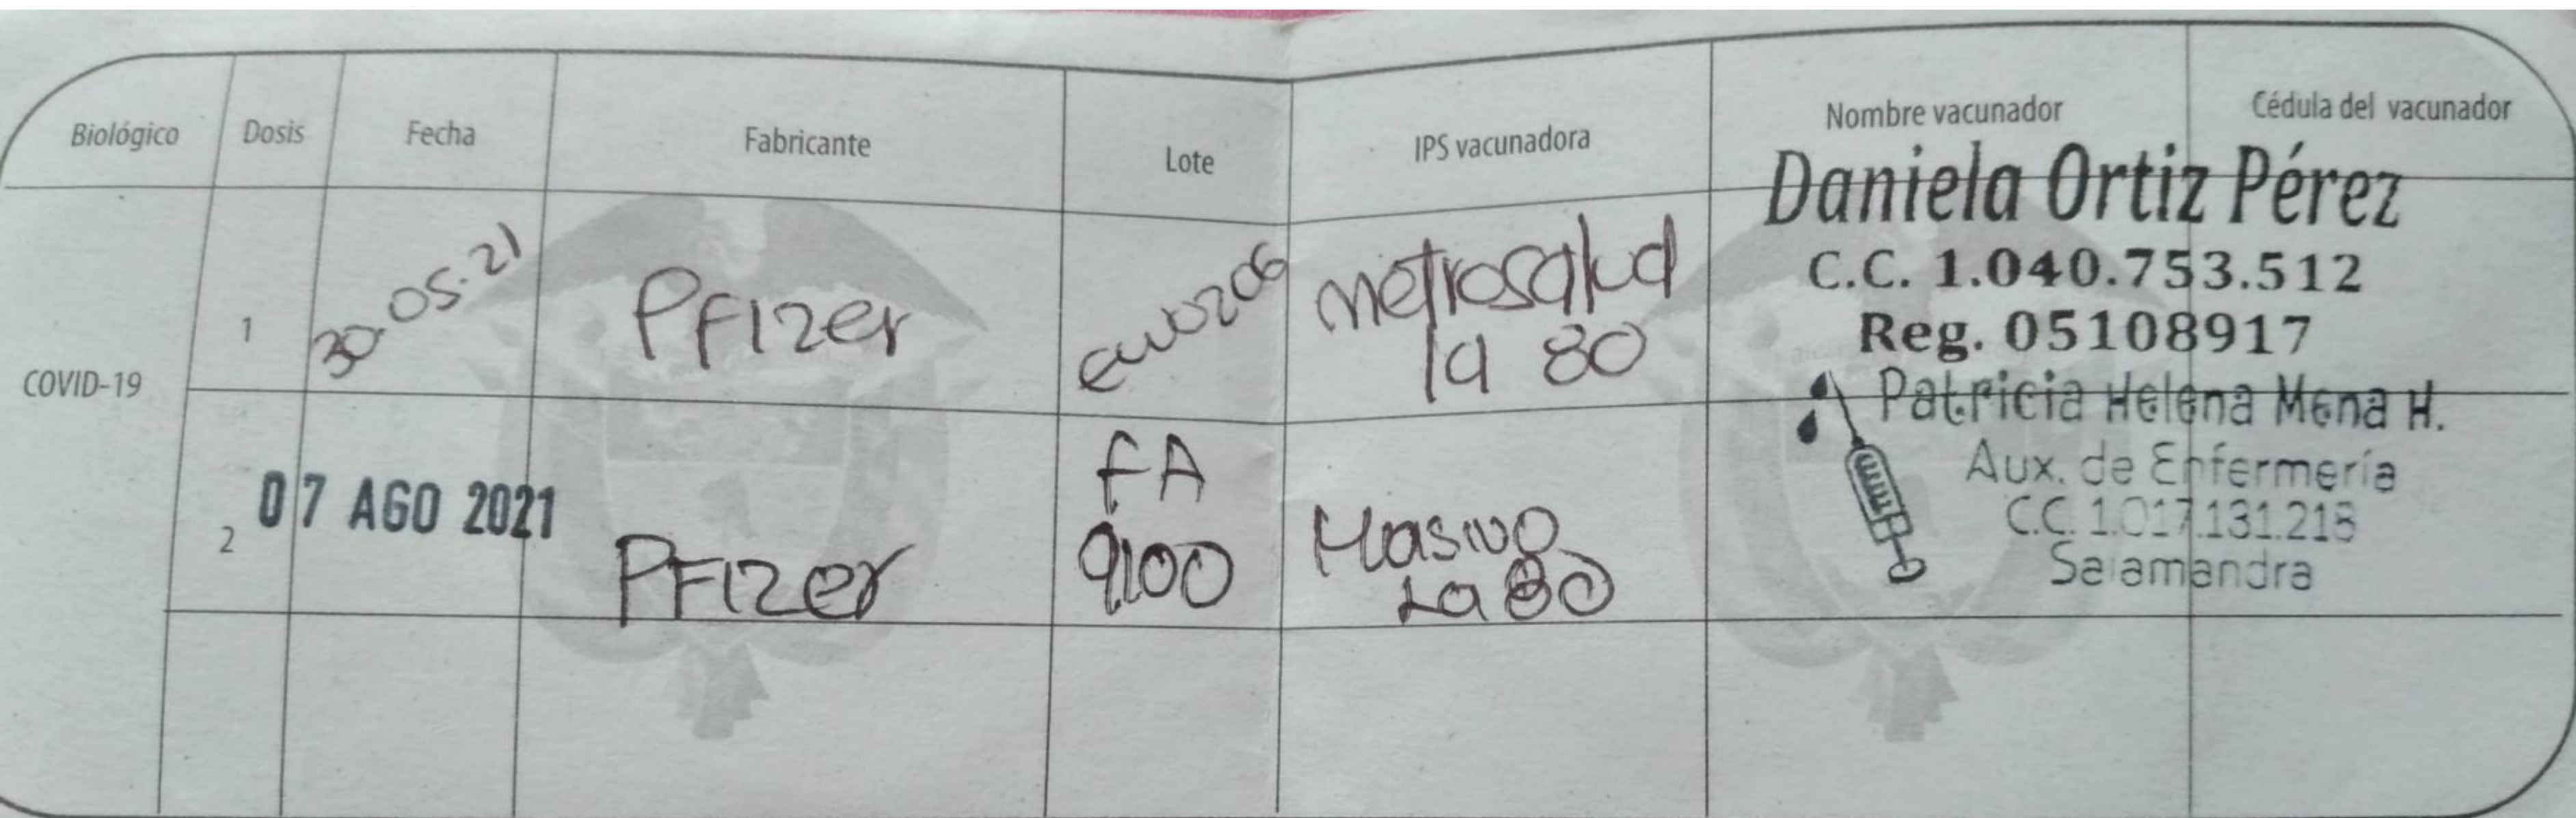 Biológico Dosis Fecha Fabricante Lote IPS vacunadora Nombre vacunador Cédula del vacunador
COVID-19
1 30.05.21 Pfizer ew0206 metrosalud
la 80
Daniela Ortiz Pérez
C.C. 1.040.753.512
Reg. 05108917
2 07 AGO 2021 PFizer FA
9100
Masivo
La 80
Patricia Helena Mena H.
Aux. de Enfermería
C.C. 1.017.131.218
Salamandra